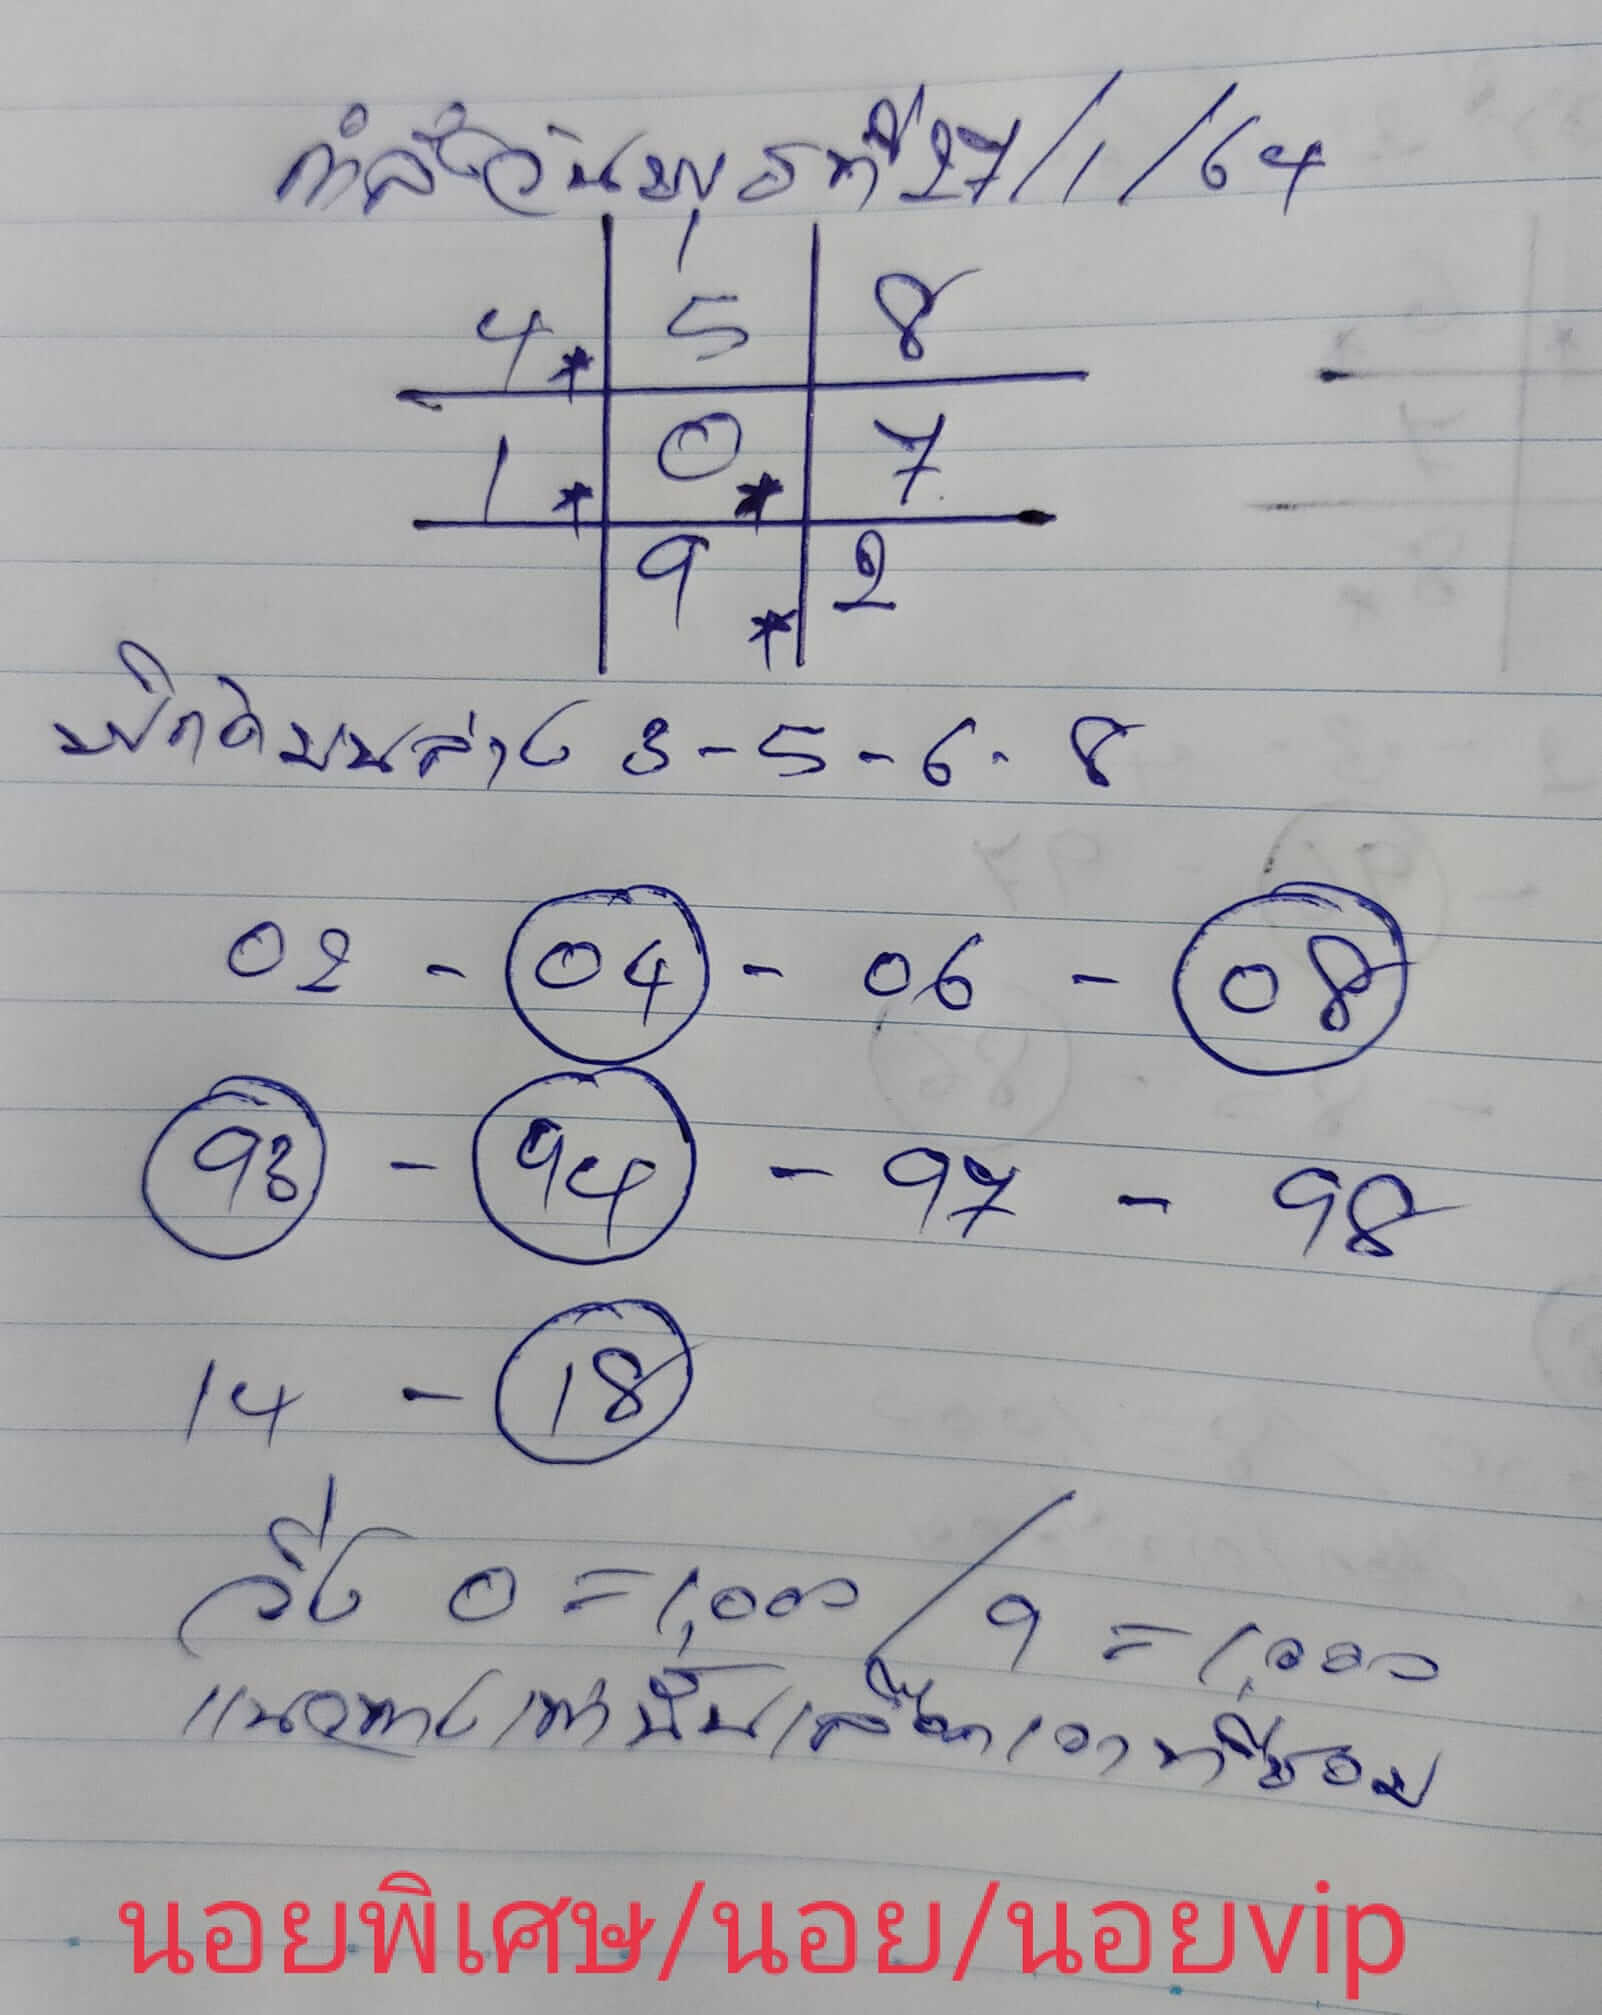 กำลังวันพุธที่ 27/1/64
4* 5 8
1* 0* 7
9* 2
พิกัดบนล่าง 3-5-6-8
02 - 04 - 06 - 08
93 - 94 - 97 - 98
14 - 18
วิ่ง 0 = 1,000 / 9 = 1,000
แนวทางเท่านั้นเลือกเอาที่ชอบ
นอยพิเศษ/นอย/นอยvip